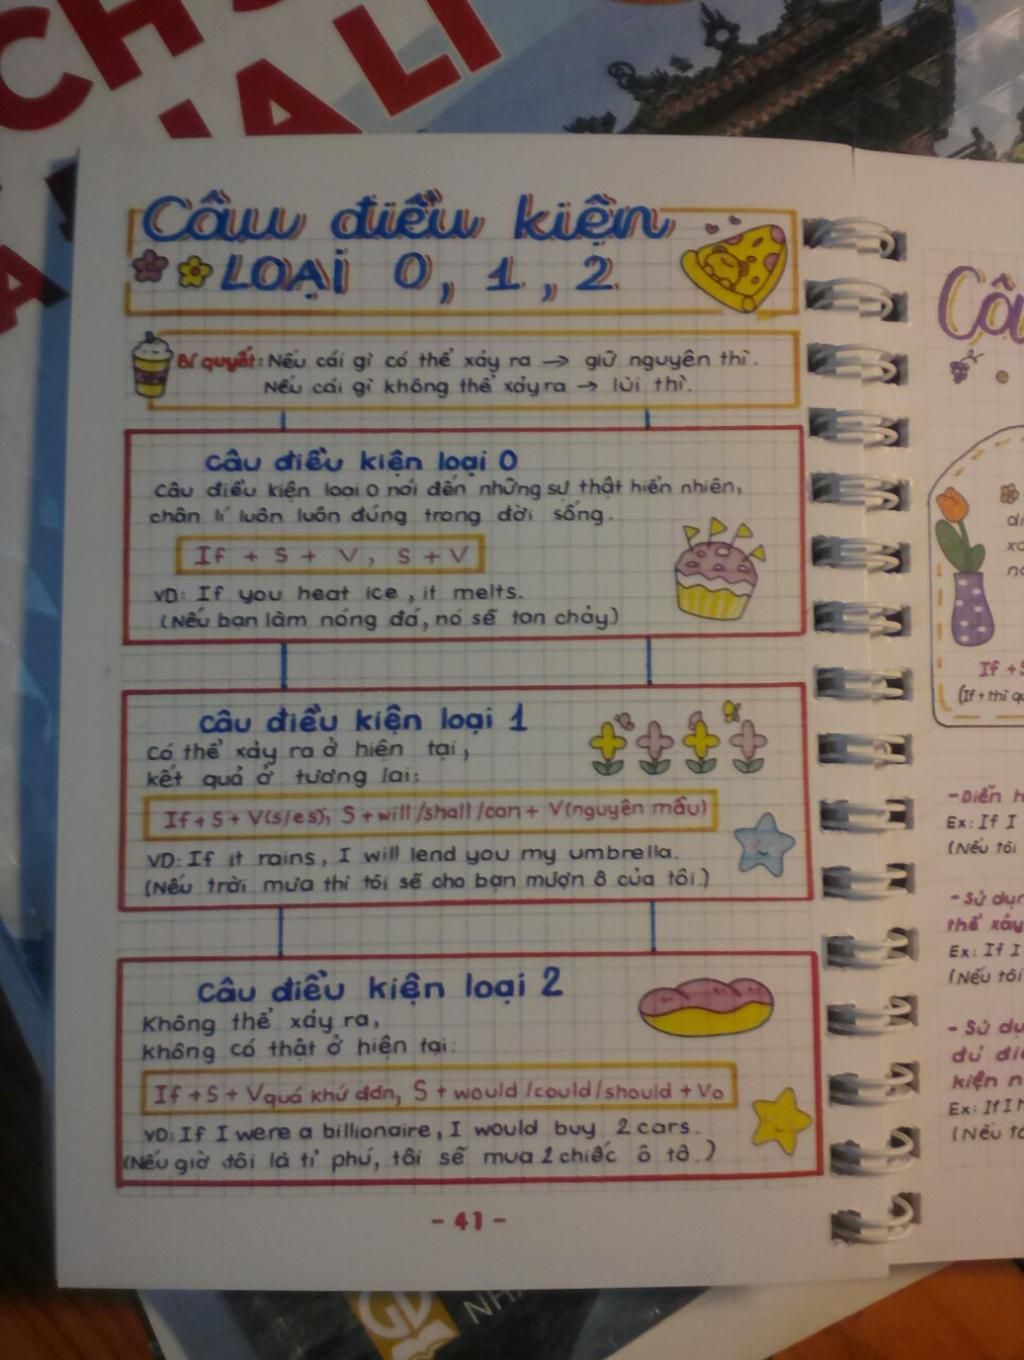 CH
ALI
A
Câu điều kiện
LOẠI 0, 1, 2
Bí quyết: Nếu cái gì có thể xảy ra → giữ nguyên thì.
Nếu cái gì không thể xảy ra → lùi thì.
Câu điều kiện loại 0
Câu điều kiện loại 0 nói đến những sự thật hiển nhiên,
chân lí luôn luôn đúng trong đời sống.
If + S + V, S + V
VD: If you heat ice, it melts.
(Nếu bạn làm nóng đá, nó sẽ tan chảy)
Câu điều kiện loại 1
Có thể xảy ra ở hiện tại,
kết quả ở tương lai:
If + S + V(s/es), S + will/shall/can + V(nguyên mẫu)
VD: If it rains, I will lend you my umbrella.
(Nếu trời mưa thì tôi sẽ cho bạn mượn ô của tôi.)
Câu điều kiện loại 2
Không thể xảy ra,
không có thật ở hiện tại:
If + S + Vquá khứ đơn, S + would/could/should + Vo
VD: If I were a billionaire, I would buy 2 cars.
(Nếu giờ đôi là tỉ phú, tôi sẽ mua 2 chiếc ô tô.)
- 41 -
Câu
If + S
(If + thì qu
- Diễn h
Ex: If I
(Nếu tôi
- Sử dụn
thể xảy
Ex: If I
(Nếu tôi
- Sử dụ
đủ điề
kiện n
Ex: If I h
(Nếu tô
GD
NH